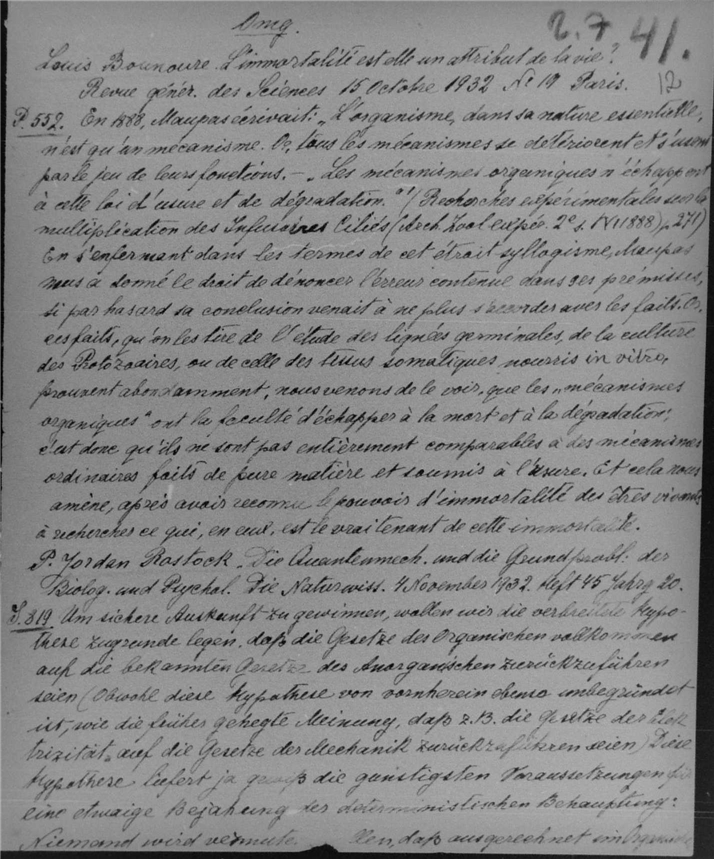 Omg.
2.7 41.
12
Louis Bounoure. L'immortalité est elle un attribut de la vie?
Revue génér. des Sciences 15 Octobre 1932 No 19 Paris.
P. 552. En 1888, Maupas écrivait: „L'organisme, dans sa nature essentielle,
n'est qu'un mécanisme. Or, tous les mécanismes se détériorent et s'usent
par le jeu de leurs fonctions. – „Les mécanismes organiques n'échappent
à cette loi d'usure et de dégradation." 1/ Recherches expérimentales sur la
multiplication des Infusoires Ciliés/Arch. Zool. expér. 2e s. (1888) p 271)
En s'enfermant dans les termes de cet étroit syllogisme, Maupas
nous a donné le droit de dénoncer l'erreur contenue dans ses prémisses,
si par hasard sa conclusion venait à ne plus s'accorder avec les faits. Or,
ces faits, qu'on les tire de l'étude des lignées germinales, de la culture
des Protozoaires, ou de celle des tissus somatiques nourris in vitro,
prouvent abondamment, nous venons de le voir, que les „mécanismes
organiques" ont la faculté d'échapper à la mort et à la dégradation;
c'est donc qu'ils ne sont pas entièrement comparables à des mécanismes
ordinaires faits de pure matière et soumis à l'uzure. Et cela nous
amène, après avoir reconnu le pouvoir d'immortalité des êtres vivants
à rechercher ce qui, en eux, est le vrai tenant de cette immortalité.
P. Jordan Rostock. Die Quantenmech. und die Grundprobl. der
Biolog. und Psychol. Die Naturwiss. 4 November 1932. Heft 45 Jahrg 20.
S. 819 Um sichere Auskunft zu gewinnen, wollen wir die verbreitete Hypo-
these zugrunde legen, daß die Gesetze des Organischen vollkommen
auf die bekannten Gesetze des Anorganischen zurückzuführen
seien (Obwohl diese Hypothese von vornherein ebenso unbegründet
ist, wie die früher gehegte Meinung, daß z.B. die Gesetze der Elek
trizität auf die Gesetze der Mechanik zurückzuführen seien) Diese
Hypothese liefert ja gewiß die günstigsten Voraussetzungen für
eine etwaige Bejahung der deterministischen Behauptung:
Niemand wird daß ausgerechnet im Organische